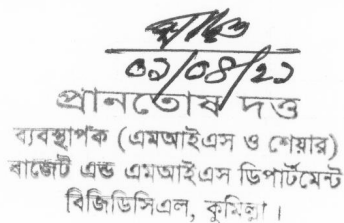 ০৯/০৪/২১
প্রানতোষ দত্ত
ব্যবস্থাপক (এমআইএস ও শেয়ার)
বাজেট এন্ড এমআইএস ডিপার্টমেন্ট
বিজিডিসিএল, কুমিল্লা।